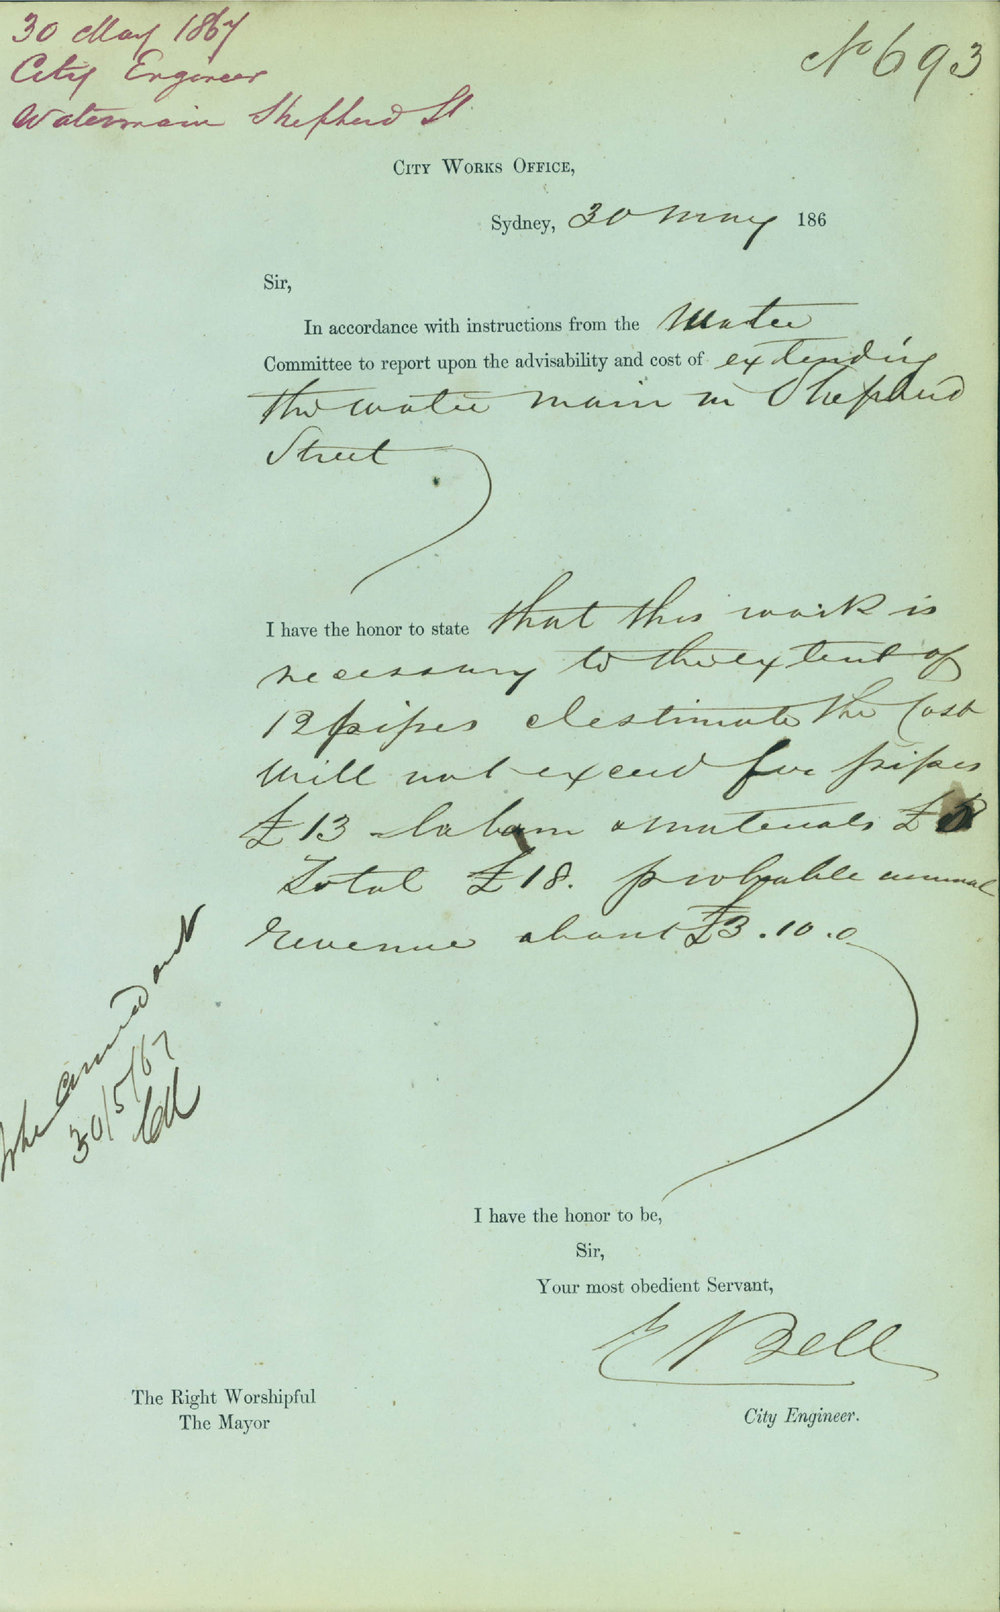 30 May 1867
City Engineer
Watermain Shepherd St
No 693
City Works Office,
Sydney, 30 May 186
Sir,
In accordance with instructions from the Water
Committee to report upon the advisability and cost of extending
the water main in Shepherd
Street
I have the honor to state that this work is
necessary to the extent of
12 pipes & estimate the Cost
will not exceed for pipes
£13 labour & materials £5
Total £18. probable annual
revenue about £3.10.0
To be carried out
30/5/67
I have the honor to be,
Sir,
Your most obedient Servant,
E Bell
The Right Worshipful
The Mayor
City Engineer.